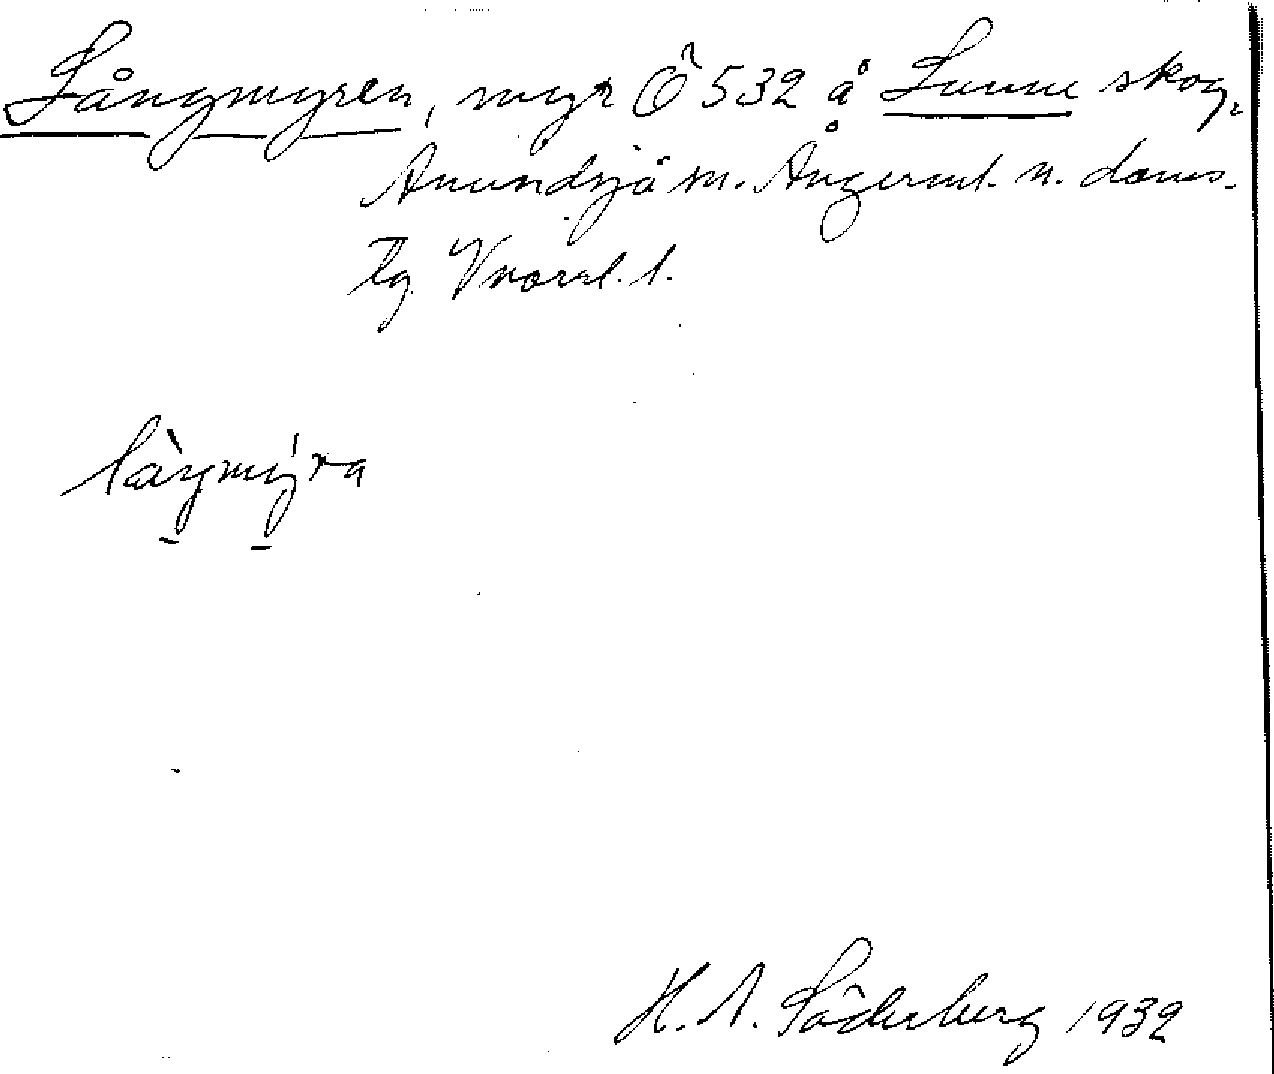 Långmyren, myr Ö 532 å Sunne skog.
Anundsjö sn. Ångerml. n. doms.
tg. Vnorrl. l.
làŋmýra
H. A. Söderberg 1932